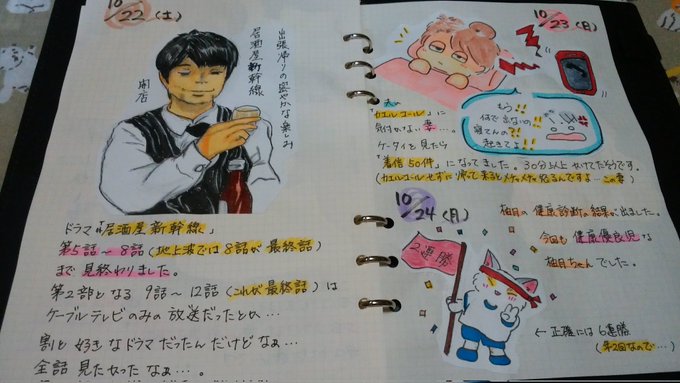 10/22(土)
出張帰りの密やかな楽しみ
居酒屋新幹線
開店
ドラマ「居酒屋新幹線」
第5話～8話(地上波では8話が最終話)
まで見終わりました。
第2部となる9話～12話(これが最終話)は
ケーブルテレビのみの放送だったとか…
割と好きなドラマだったんだけどなぁ…
全話見たかったなぁ…。
10/23(日)
もう!!
何で出ないの?
寝てんの?!
起きてよ!!
「カエルコール」に
気付かない妻…。
ケータイを見たら
「着信50件」になってました。30分以上かけてたそうです。
(カエルコールせずに帰って来るとメチャメチャ怒るんですよ…この妻)
10/24(月)
柚月の健康診断の結果が出ました。
今回も健康優良児な
柚月ちゃんでした。
2連勝
←正確には6連勝
(第2回なので…)